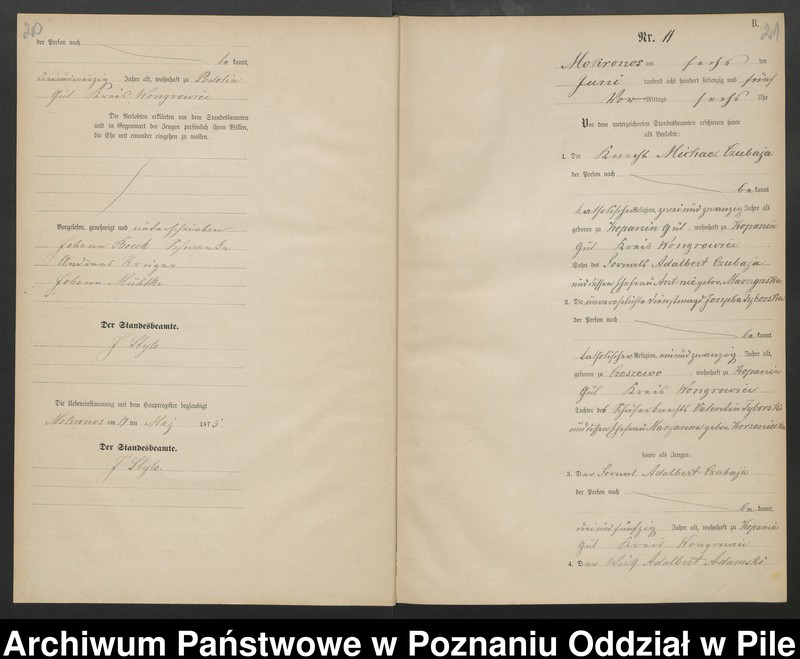 20
der Person nach
be kannt,
Jahre alt, wohnhaft zu Podolin
Gut Kreis Wongrowiec
Die Verlobten erklärten vor dem Standesbeamten
und in Gegenwart der Zeugen persönlich ihren Willen,
die Ehe mit einander eingehen zu wollen.
Vorgelesen, genehmigt und unterschrieben
Johann
Andreas Krüger
Johann Mühlke
Der Standesbeamte.
Die Uebereinstimmung mit dem Hauptregister beglaubigt
Mokronos am ten May 1875
Der Standesbeamte.
B.
21
Nr. 11
Mokronos am sechs ten
Juni tausend acht hundert siebenzig und fünf
Vor mittags sechs Uhr
Vor dem unterzeichneten Standesbeamten erschienen heute
als Verlobte:
1. Der Knecht Michael Czubaja
der Person nach
be kannt
katholischer Religion, zwei und zwanzig Jahre alt
geboren zu Kopanin Gut, wohnhaft zu Kopanin
Gut Kreis Wongrowiec
Sohn des Fornals Adalbert Czubaja
und dessen Ehefrau Antonie gebor.
2. Die unverehelichte Dienstmagd Josepha Zyborska
der Person nach
be kannt
katholischer Religion, ein und zwanzig Jahre alt,
geboren zu Czeszewo, wohnhaft zu Kopanin
Gut Kreis Wongrowiec
Tochter des Schäferknechts Valentin Zyborski
und dessen Ehefrau Maryanna gebor.
sowie als Zeugen:
3. Der Fornal Adalbert Czubaja
der Person nach
be kannt,
drei und fünfzig Jahre alt, wohnhaft zu Kopanin
Gut Kreis Wongrowiec
4. Der Adalbert Adamski
Archiwum Państwowe w Poznaniu Oddział w Pile